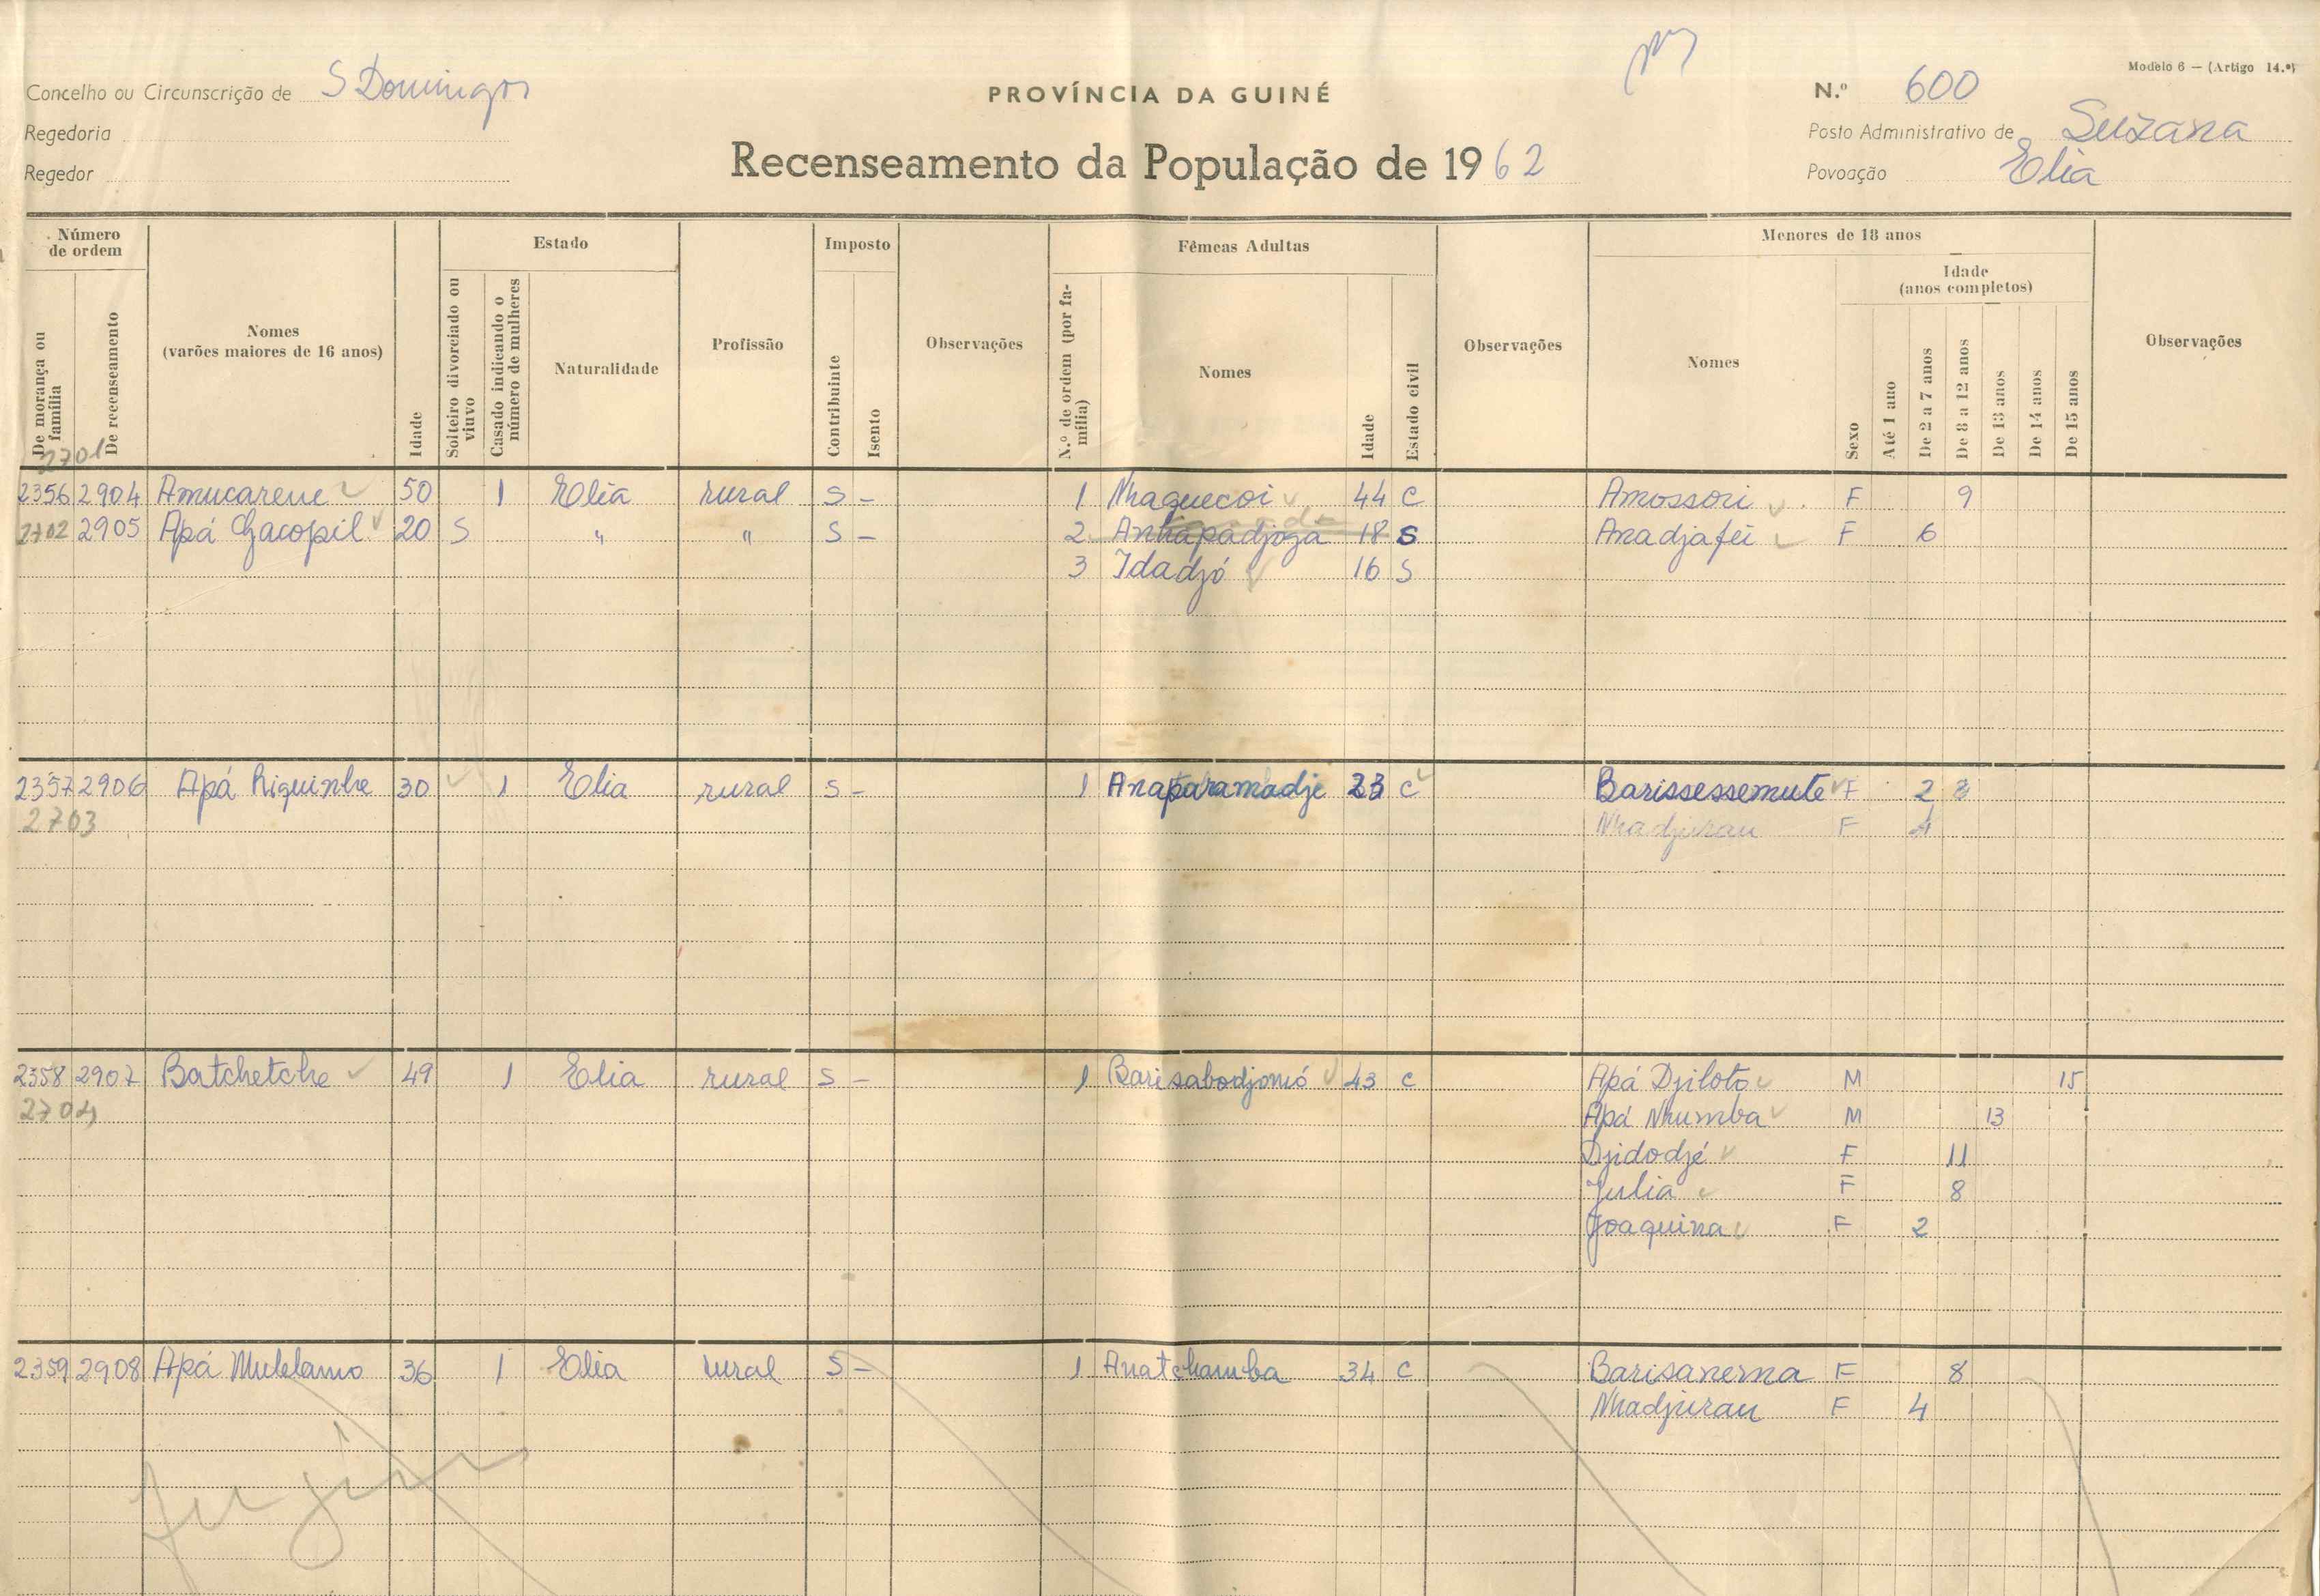 Modelo 6 — (Artigo 14.º)
Concelho ou Circunscrição de S Domingos
PROVÍNCIA DA GUINÉ
N.º 600
Regedoria
Posto Administrativo de Suzana
Recenseamento da População de 1962
Regedor
Povoação Elia
Número de ordem
Estado
Imposto
Fêmeas Adultas
Menores de 18 anos
Idade (anos completos)
De morança ou família
De recenseamento
Nomes (varões maiores de 16 anos)
Idade
Solteiro divorciado ou viuvo
Casado indicando o número de mulheres
Naturalidade
Profissão
Contribuinte
Isento
Observações
N.º de ordem (por família)
Nomes
Idade
Estado civil
Observações
Nomes
Sexo
Até 1 ano
De 2 a 7 anos
De 8 a 12 anos
De 13 anos
De 14 anos
De 15 anos
Observações
2701
2356 2904 Amucarene 50 1 Elia rural S - 1 Nhaguecoi 44 C Amossori F 9
2702 2905 Apá Gacopil 20 S " " S - 2 18 S Anadjafei F 6
3 Idadjó 16 S
2357 2906 Apá Riquinhe 30 1 Elia rural S - 1 Anaparamadje 23 C Barissessemute F 2 3
2703 Nhadjurau F 4
2358 2907 Batchetche 49 1 Elia rural S - 1 Barisabodjomó 43 C Apá Djiloto M 15
2704 Apá Nhumba M 13
Djidodjé F 11
Julia F 8
Joaquina F 2
2359 2908 Apá Mulelamo 36 1 Elia rural S - 1 Anatchamba 34 C Barisanerna F 8
Nhadjurau F 4
fugiu